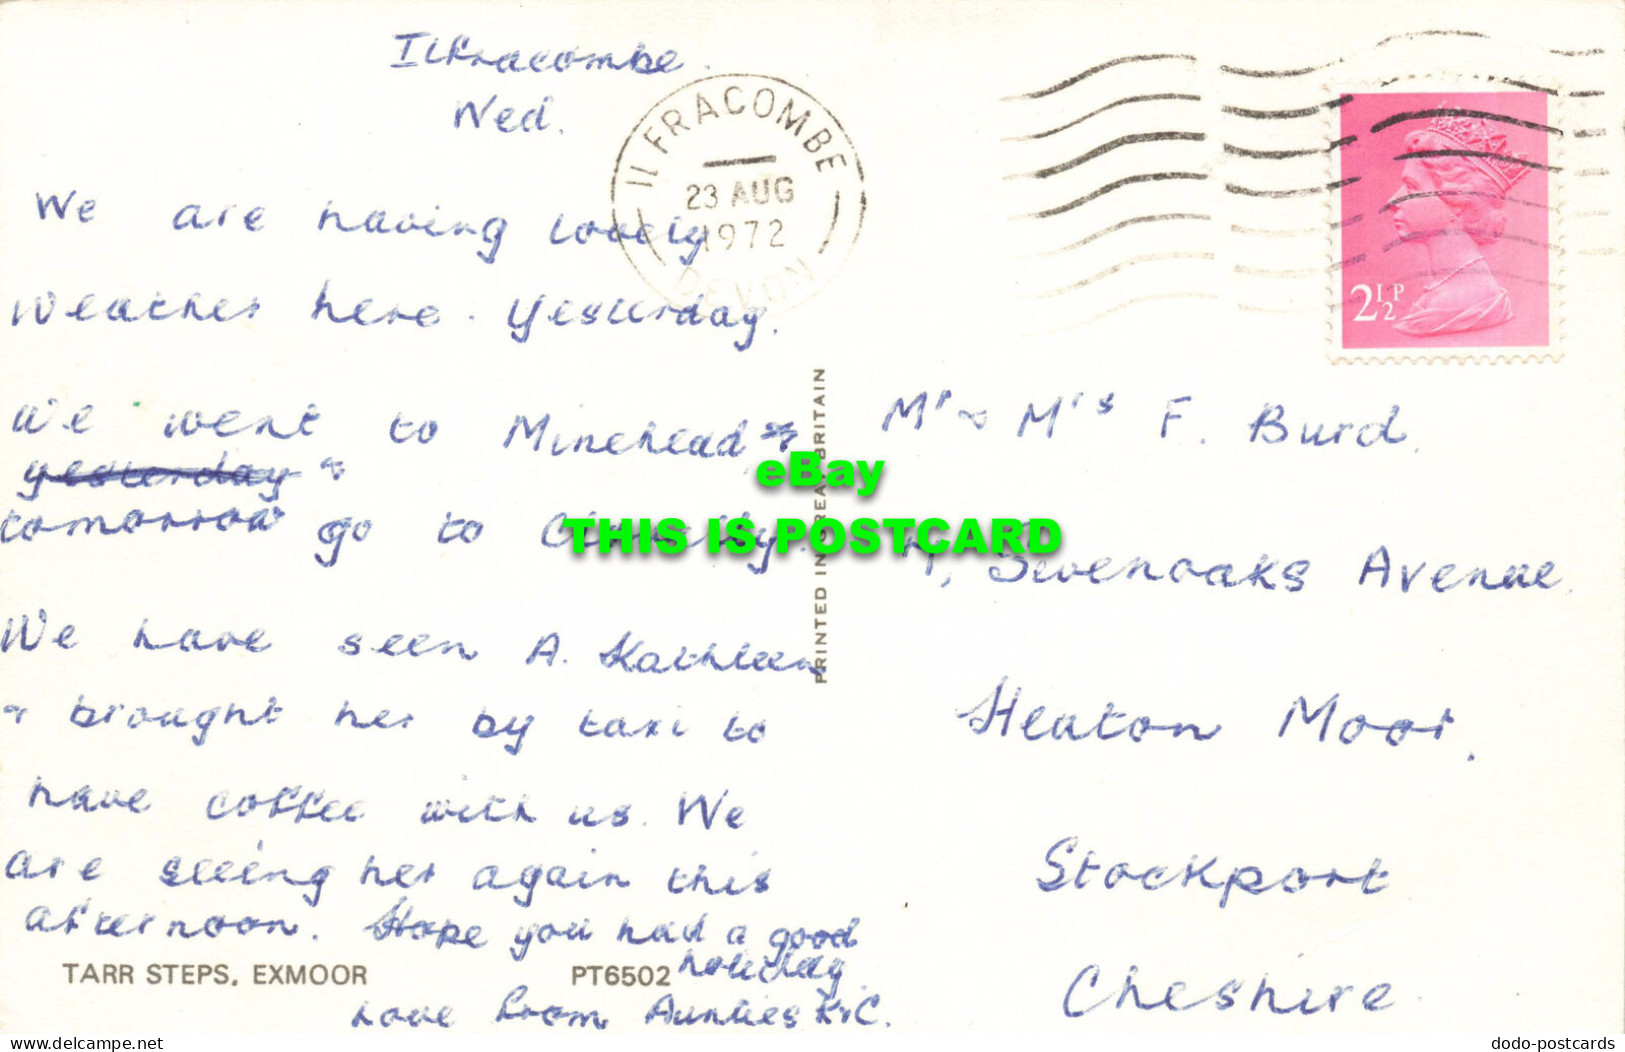 Ilfracombe.
Wed.
We are having lovely
weather here. Yesterday.
We went to Minehead &
yesterday &
tomorrow go to Clovelly.
We have seen A. Kathleen
& brought her by taxi to
have coffee with us. We
are seeing her again this
afternoon. Hope you had a good
holiday
Love from Aunties K & C.
TARR STEPS, EXMOOR
PT6502
PRINTED IN GREAT BRITAIN
ILFRACOMBE
23 AUG
1972
DEVON
2½P
Mr & Mrs F. Burd.
7, Sevenoaks Avenue.
Heaton Moor.
Stockport
Cheshire.
eBay
THIS IS POSTCARD
www.delcampe.net
dodo-postcards